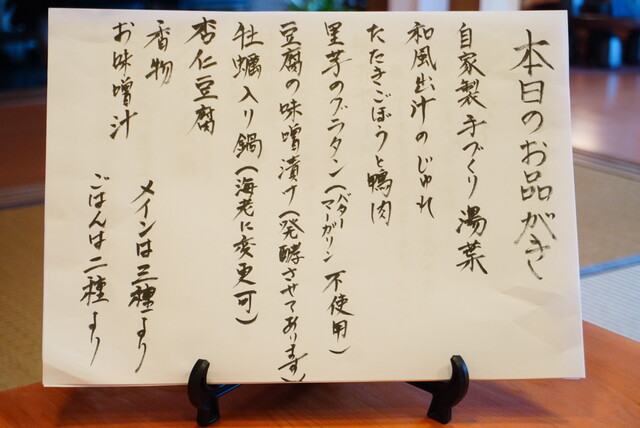 本日のお品がき
自家製手づくり湯葉
和風出汁のじゅれ
たたきごぼうと鴨肉
里芋のグラタン(バターマーガリン不使用)
豆腐の味噌漬け(発酵させてあります)
牡蠣入り鍋(海老に変更可)
杏仁豆腐
香物
お味噌汁
メインは三種より
ごはんは二種より